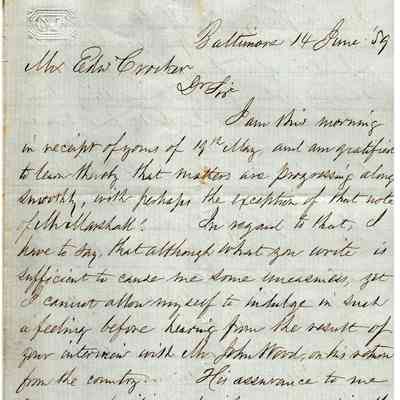 Baltimore 14 June '59
Mr. Edw. Crocker
Dr Sir
I am this morning
in receipt of yours of 19th May and am gratified
to learn thereby that matters are progressing along
smoothly, with perhaps the exception of that note
of Mr. Marshall! In regard to that, I
have to say, that although what you write is
sufficient to cause me some uneasiness, yet
I cannot allow myself to indulge in such
a feeling before hearing from the result of
your interview with Mr John Wood, on his return
from the country. His assurance to me